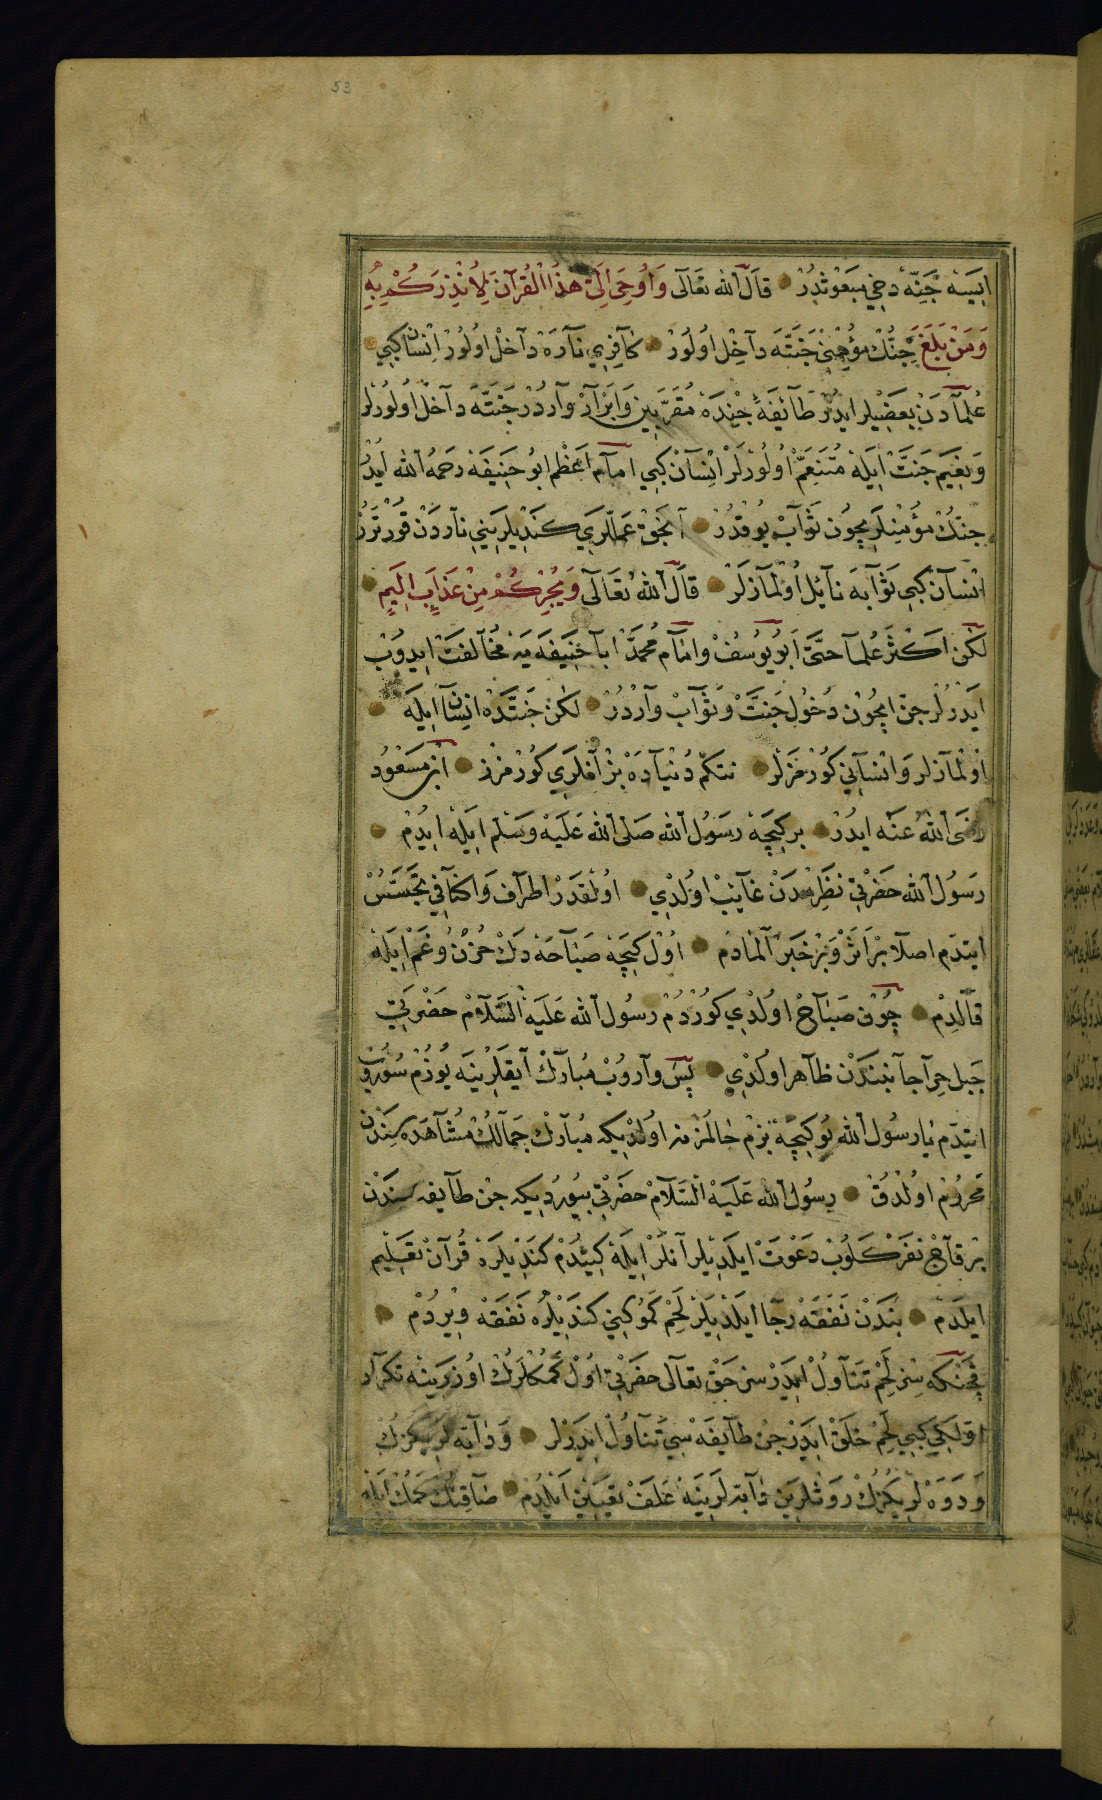 53
انبيسه جنّه دخي مبعوثدر قال الله تعالى وَاُوحِىَ اِلَىَّ هٰذَا الْقُرآنُ لِاُنْذِرَكُمْ بِهِ
وَمَنْ بَلَغَ جنّك مؤمنى جنّته داخل اولور كافرى ناره داخل اولور انسان كبى
علمادن بعضيلر ايدر طائفهٔ جنده مقرّبين وابرار واردر جنّته داخل اولورلر
ونعيم جنّت ايله متنعّم اولورلر انسان كبى امام اعظم ابو حنيفه رحمه الله ايدر
جنّك مؤمنلريچون ثواب يوقدر آنجق عمللرى كنديلرينى ناردن قورترر
انسان كبى ثوابه نائل اولمازلر قال الله تعالى وَيُجِرْكُمْ مِنْ عَذَابٍ اَلِيمٍ
لكن اكثر علما حتّى ابو يوسف وامام محمد ابا حنيفه يه مخالفت ايدوب
ايدرلر جن ايچون دخول جنّت وثواب واردر لكن جنّتده انسان ايله
اولمازلر وانسانى كورمزلر نتكم دنياده بز آنلرى كورمزز ابن مسعود
رضى الله عنه ايدر بر كيجه رسول الله صلى الله عليه وسلم ايله ايدم
رسول الله حضرتى نظرمدن غائب اولدى اولقدر اطراف واكنافى تجسّس
ايتدم اصلا بر اثر و بر خبر آلمادم اول كيجه صباحه دك حزن و غم ايله
قالدم چون صباح اولدى كوردم رسول الله عليه السلام حضرتى
جبل حرا جانبندن ظاهر اولدى پس واروب مبارك آيقلرينه يوزم سوروب
ايتدم يا رسول الله بو كيجه بزم حالمز نه اولديكه مبارك جمالك مشاهده سندن
محروم اولدق رسول الله عليه السلام حضرتى بيورديكه جن طائفه سندن
بر قاچ نفر كلوب دعوت ايلديلر آنلر ايله كيتدم كنديلره قرآن تعليم
ايلدم بندن نفقه رجا ايلديلر لحم كموكينى كنديلره نفقه ويردم
قچنكه سز لحم تناول ايدرسز حق تعالى حضرتى اول كموكلرك اوزرينه تكرار
اوّلكى كبى لحم خلق ايدر جن طائفه سى تناول ايدرلر ودابّه لريكزك
ودوه لريكزك روثلرين دابّه لرينه علف تعيين ايلدم صاقنك كموك ايله